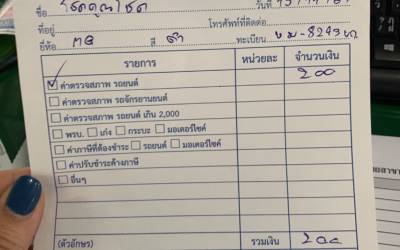 ชื่อ โชคคูณโชค วันที่
ที่อยู่ โทรศัพท์ที่ติดต่อ
ยี่ห้อ MG สี ดำ ทะเบียน
รายการ หน่วยละ จำนวนเงิน
ค่าตรวจสภาพ รถยนต์ 200
ค่าตรวจสภาพ รถจักรยานยนต์
ค่าตรวจสภาพ รถยนต์ เกิน 2,000
พรบ. เก๋ง กระบะ มอเตอร์ไซค์
ค่าภาษีที่ต้องชำระ รถยนต์ มอเตอร์ไซค์
ค่าปรับชำระค้างภาษี
อื่นๆ
(ตัวอักษร) รวมเงิน 200